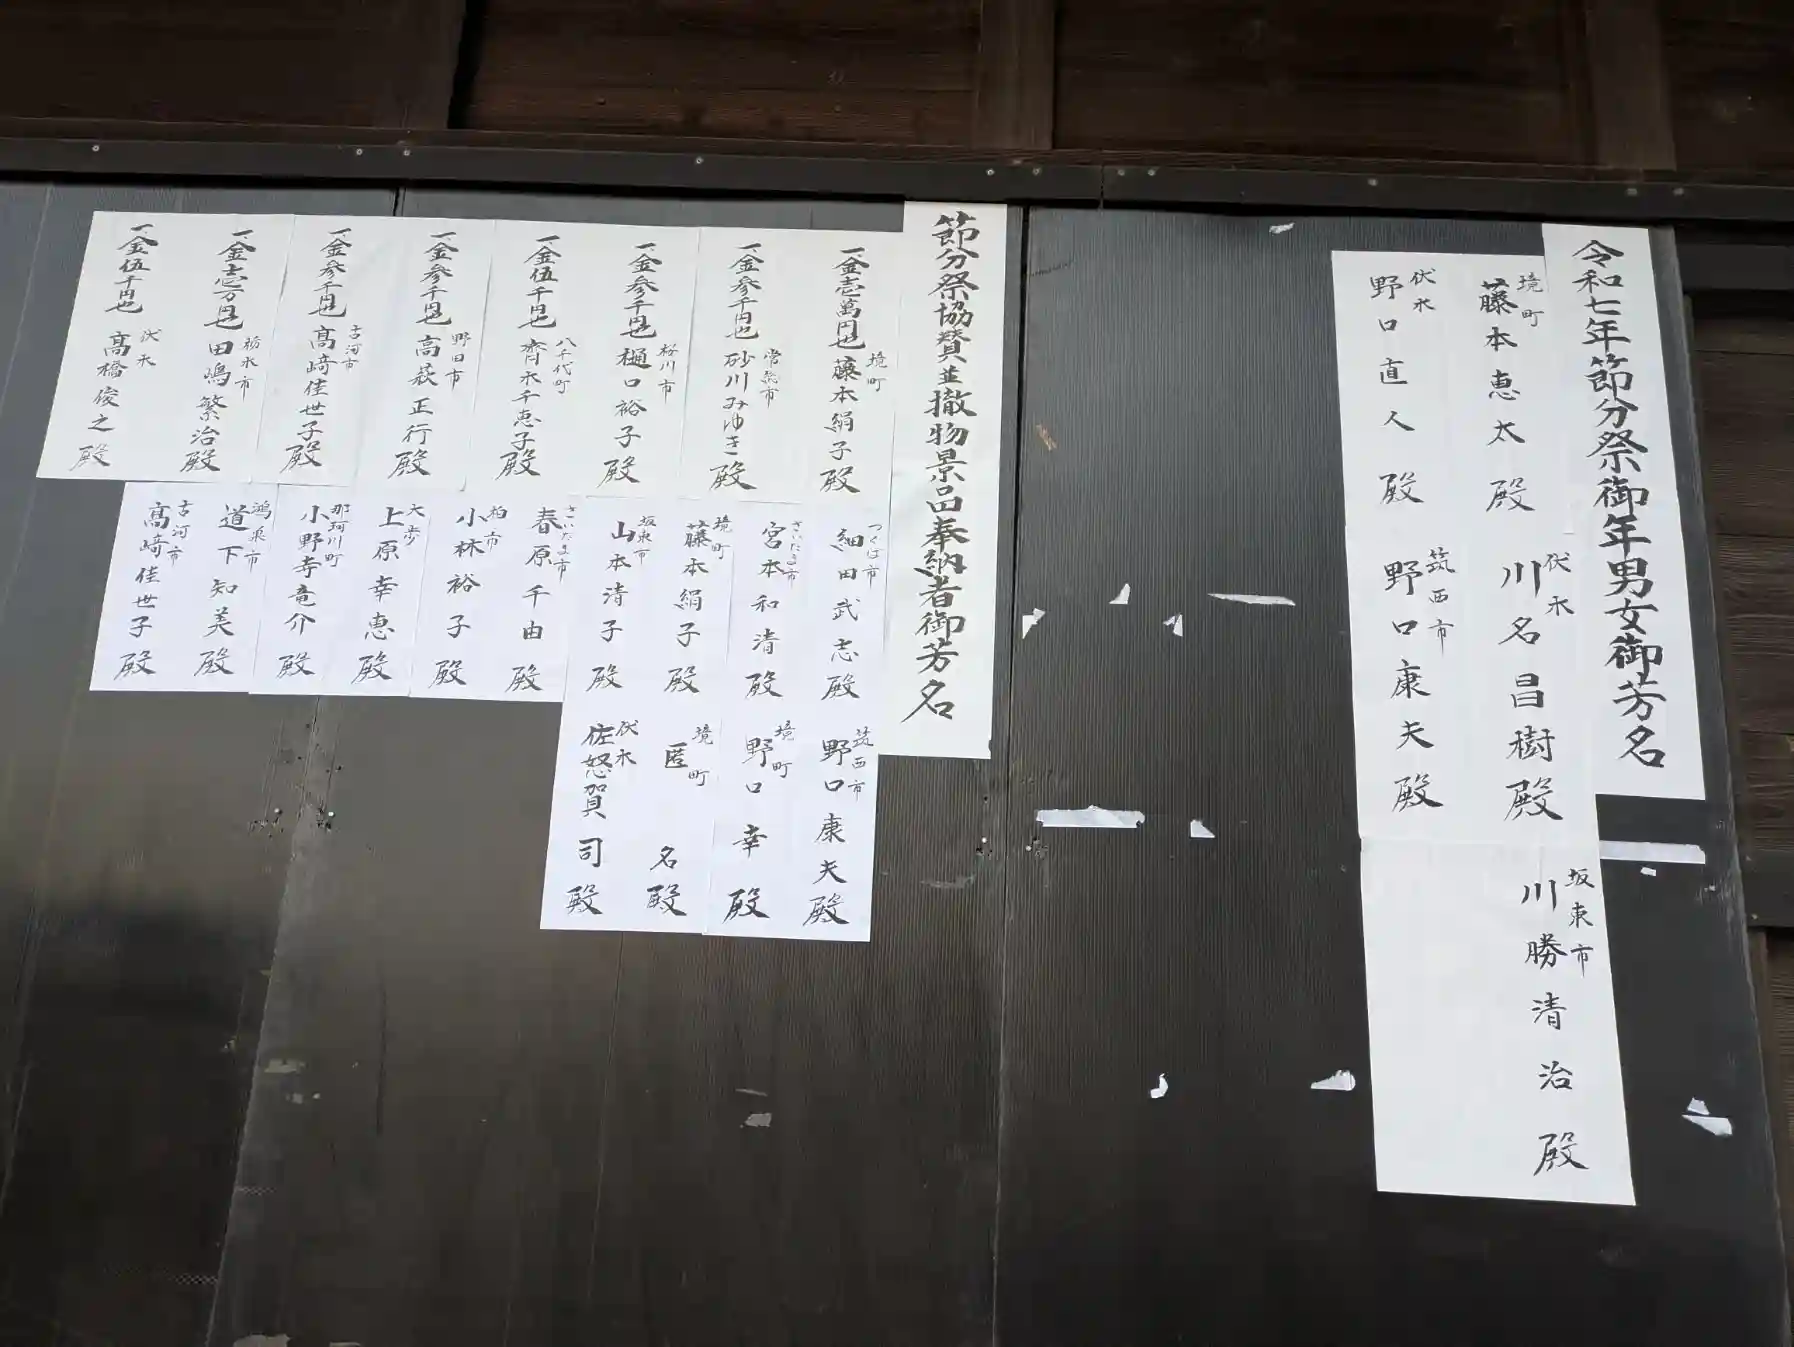 令和七年節分祭御年男女御芳名
境町
藤本恵太 殿
伏木
野口直人 殿
伏木
川名昌樹殿
筑西市
野口康夫殿
坂東市
川勝清治 殿
節分祭協賛並撤物景品奉納者御芳名
一、金壱萬円也 境町 藤本絹子殿
一、金参千円也 常総市 砂川みゆき殿
一、金参千円也 桜川市 樋口裕子殿
一、金伍千円也 八千代町 齊木千恵子殿
一、金参千円也 野田市 高萩正行殿
一、金参千円也 古河市 髙﨑佳世子殿
一、金壱万円也 栃木市 田嶋繁治殿
一、金伍千円也 伏木 髙橋俊之殿
つくば市
細田武志殿
さいたま市
宮本和清殿
境町
藤本絹子殿
坂東市
山本清子殿
さいたま市
春原千由殿
柏市
小林裕子殿
大歩
上原幸恵殿
那珂川町
小野寺竜介殿
鴻巣市
道下知美殿
古河市
髙﨑佳世子殿
筑西市
野口康夫殿
境町
野口幸殿
境町
匿名殿
伏木
佐怒賀司殿